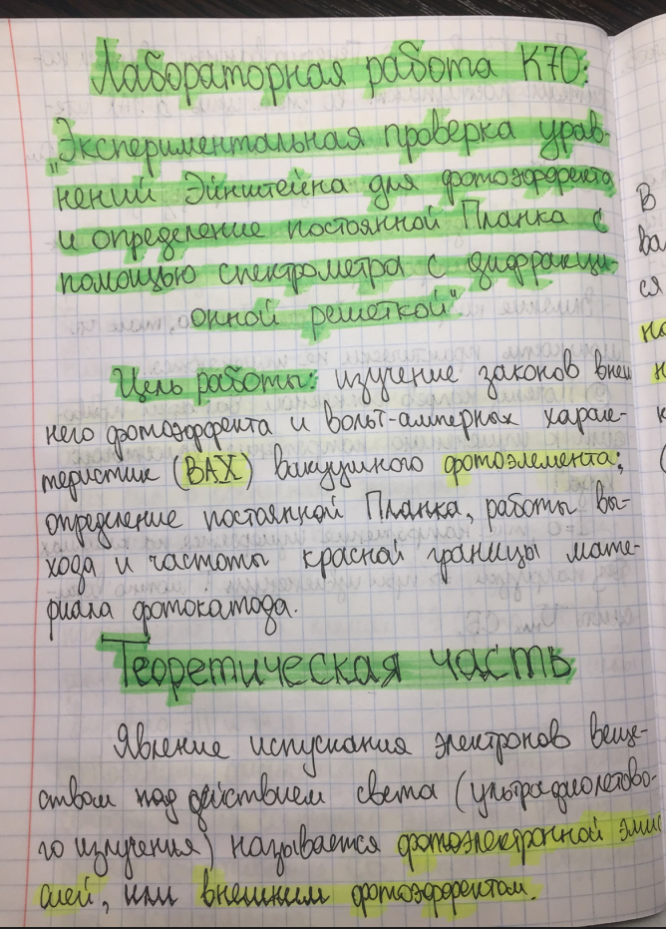 Лабораторная работа К70:
"Экспериментальная проверка урав-
нений Эйнштейна для фотоэффекта
и определение постоянной Планка с
помощью спектрометра с дифракци-
онной решеткой"
Цель работы: изучение законов внеш
него фотоэффекта и вольт-амперных харак-
теристик (ВАХ) вакуумного фотоэлемента;
определение постоянной Планка, работы вы-
хода и частоты красной границы мате-
риала фотокатода.
Теоретическая часть
Явление испускания электронов веще-
ством под действием света (ультрафиолетово-
го излучения) называется фотоэлектронной эмис
сией, или внешним фотоэффектом.